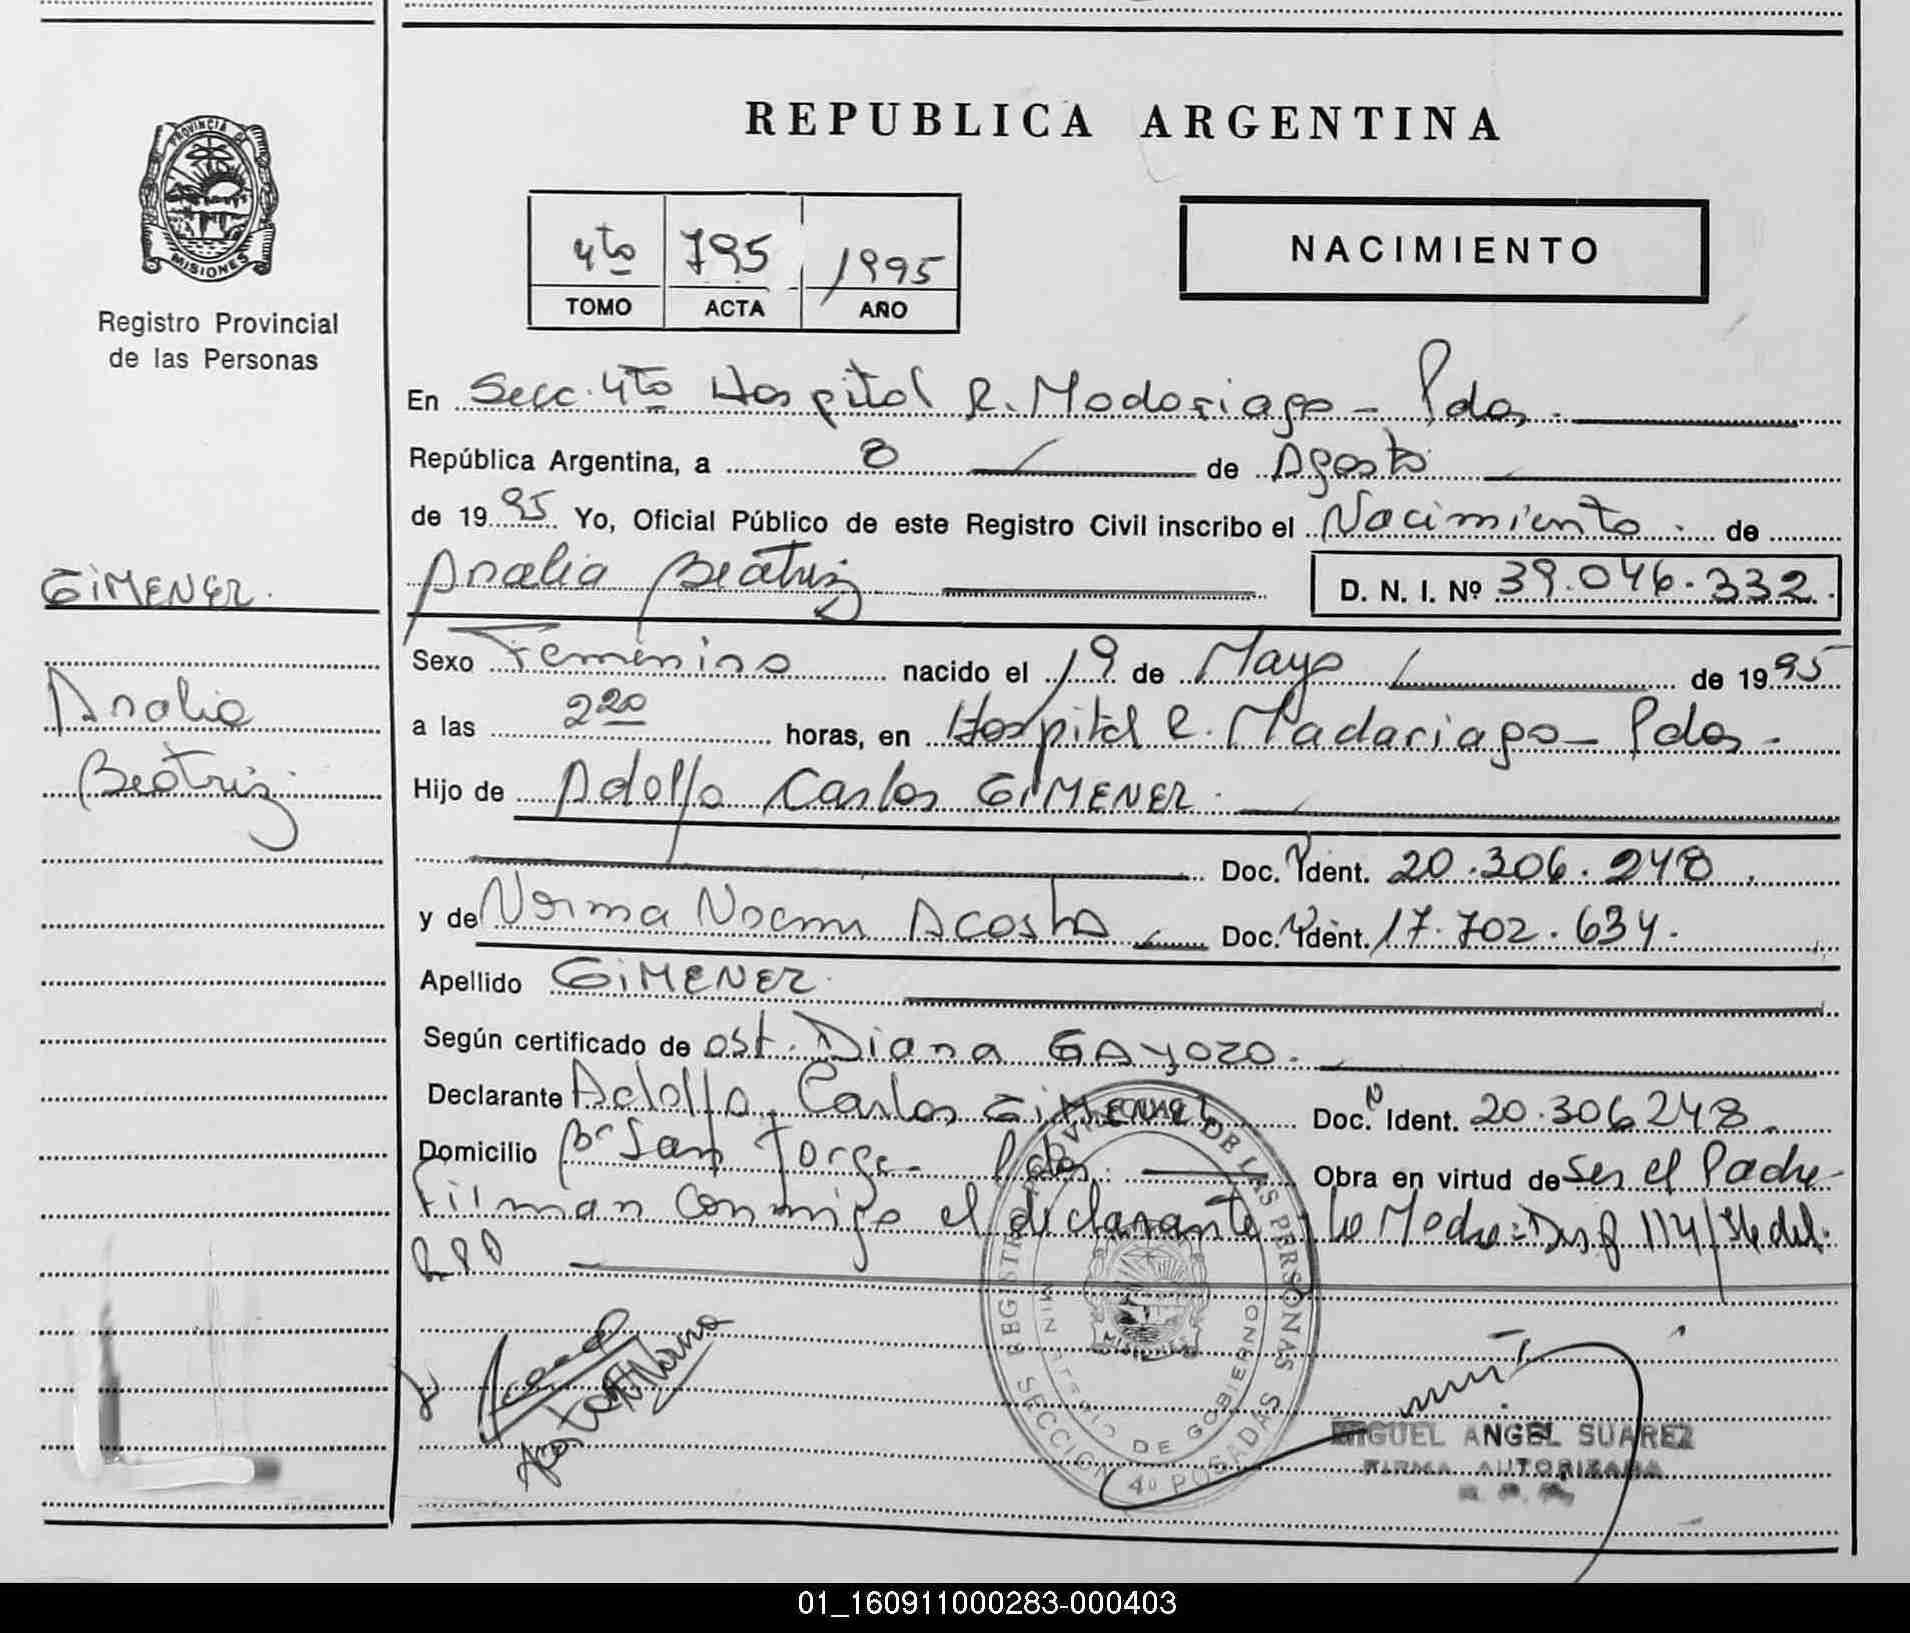 REPUBLICA ARGENTINA
PROVINCIA DE
MISIONES
Registro Provincial
de las Personas
4to 795 1995
TOMO ACTA AÑO
NACIMIENTO
En Secc. 4to Hospital R. Madariaga - Pdas.
República Argentina, a 8 de Agosto
de 1995 Yo, Oficial Público de este Registro Civil inscribo el Nacimiento de
GIMENEZ.
Analia Beatriz D. N. I. Nº 39.046.332.
Sexo Femenino nacido el 19 de Mayo de 1995
Analia
Beatriz
a las 220 horas, en Hospital R. Madariaga - Pdas.
Hijo de Adolfo Carlos GIMENEZ.
Doc. Ident. 20.306.248.
y de Norma Noemi Acosta Doc. Ident. 17.702.634.
Apellido GIMENEZ.
Según certificado de ost. Diana GAYOZO.
Declarante Adolfo Carlos GIMENEZ Doc. N Ident. 20.306248.
Domicilio Bº San Jorge - Pdas. Obra en virtud de ser el Padre
Firman conmigo el declarante y la Madre = Disp 114/94 del
RPP
Acosta Norma
REGISTRO PROVINCIAL DE LAS PERSONAS
MINISTERIO DE GOBIERNO
MISIONES
SECCION 4º POSADAS
MIGUEL ANGEL SUAREZ
FIRMA AUTORIZADA
R. P. P.
01_160911000283-000403